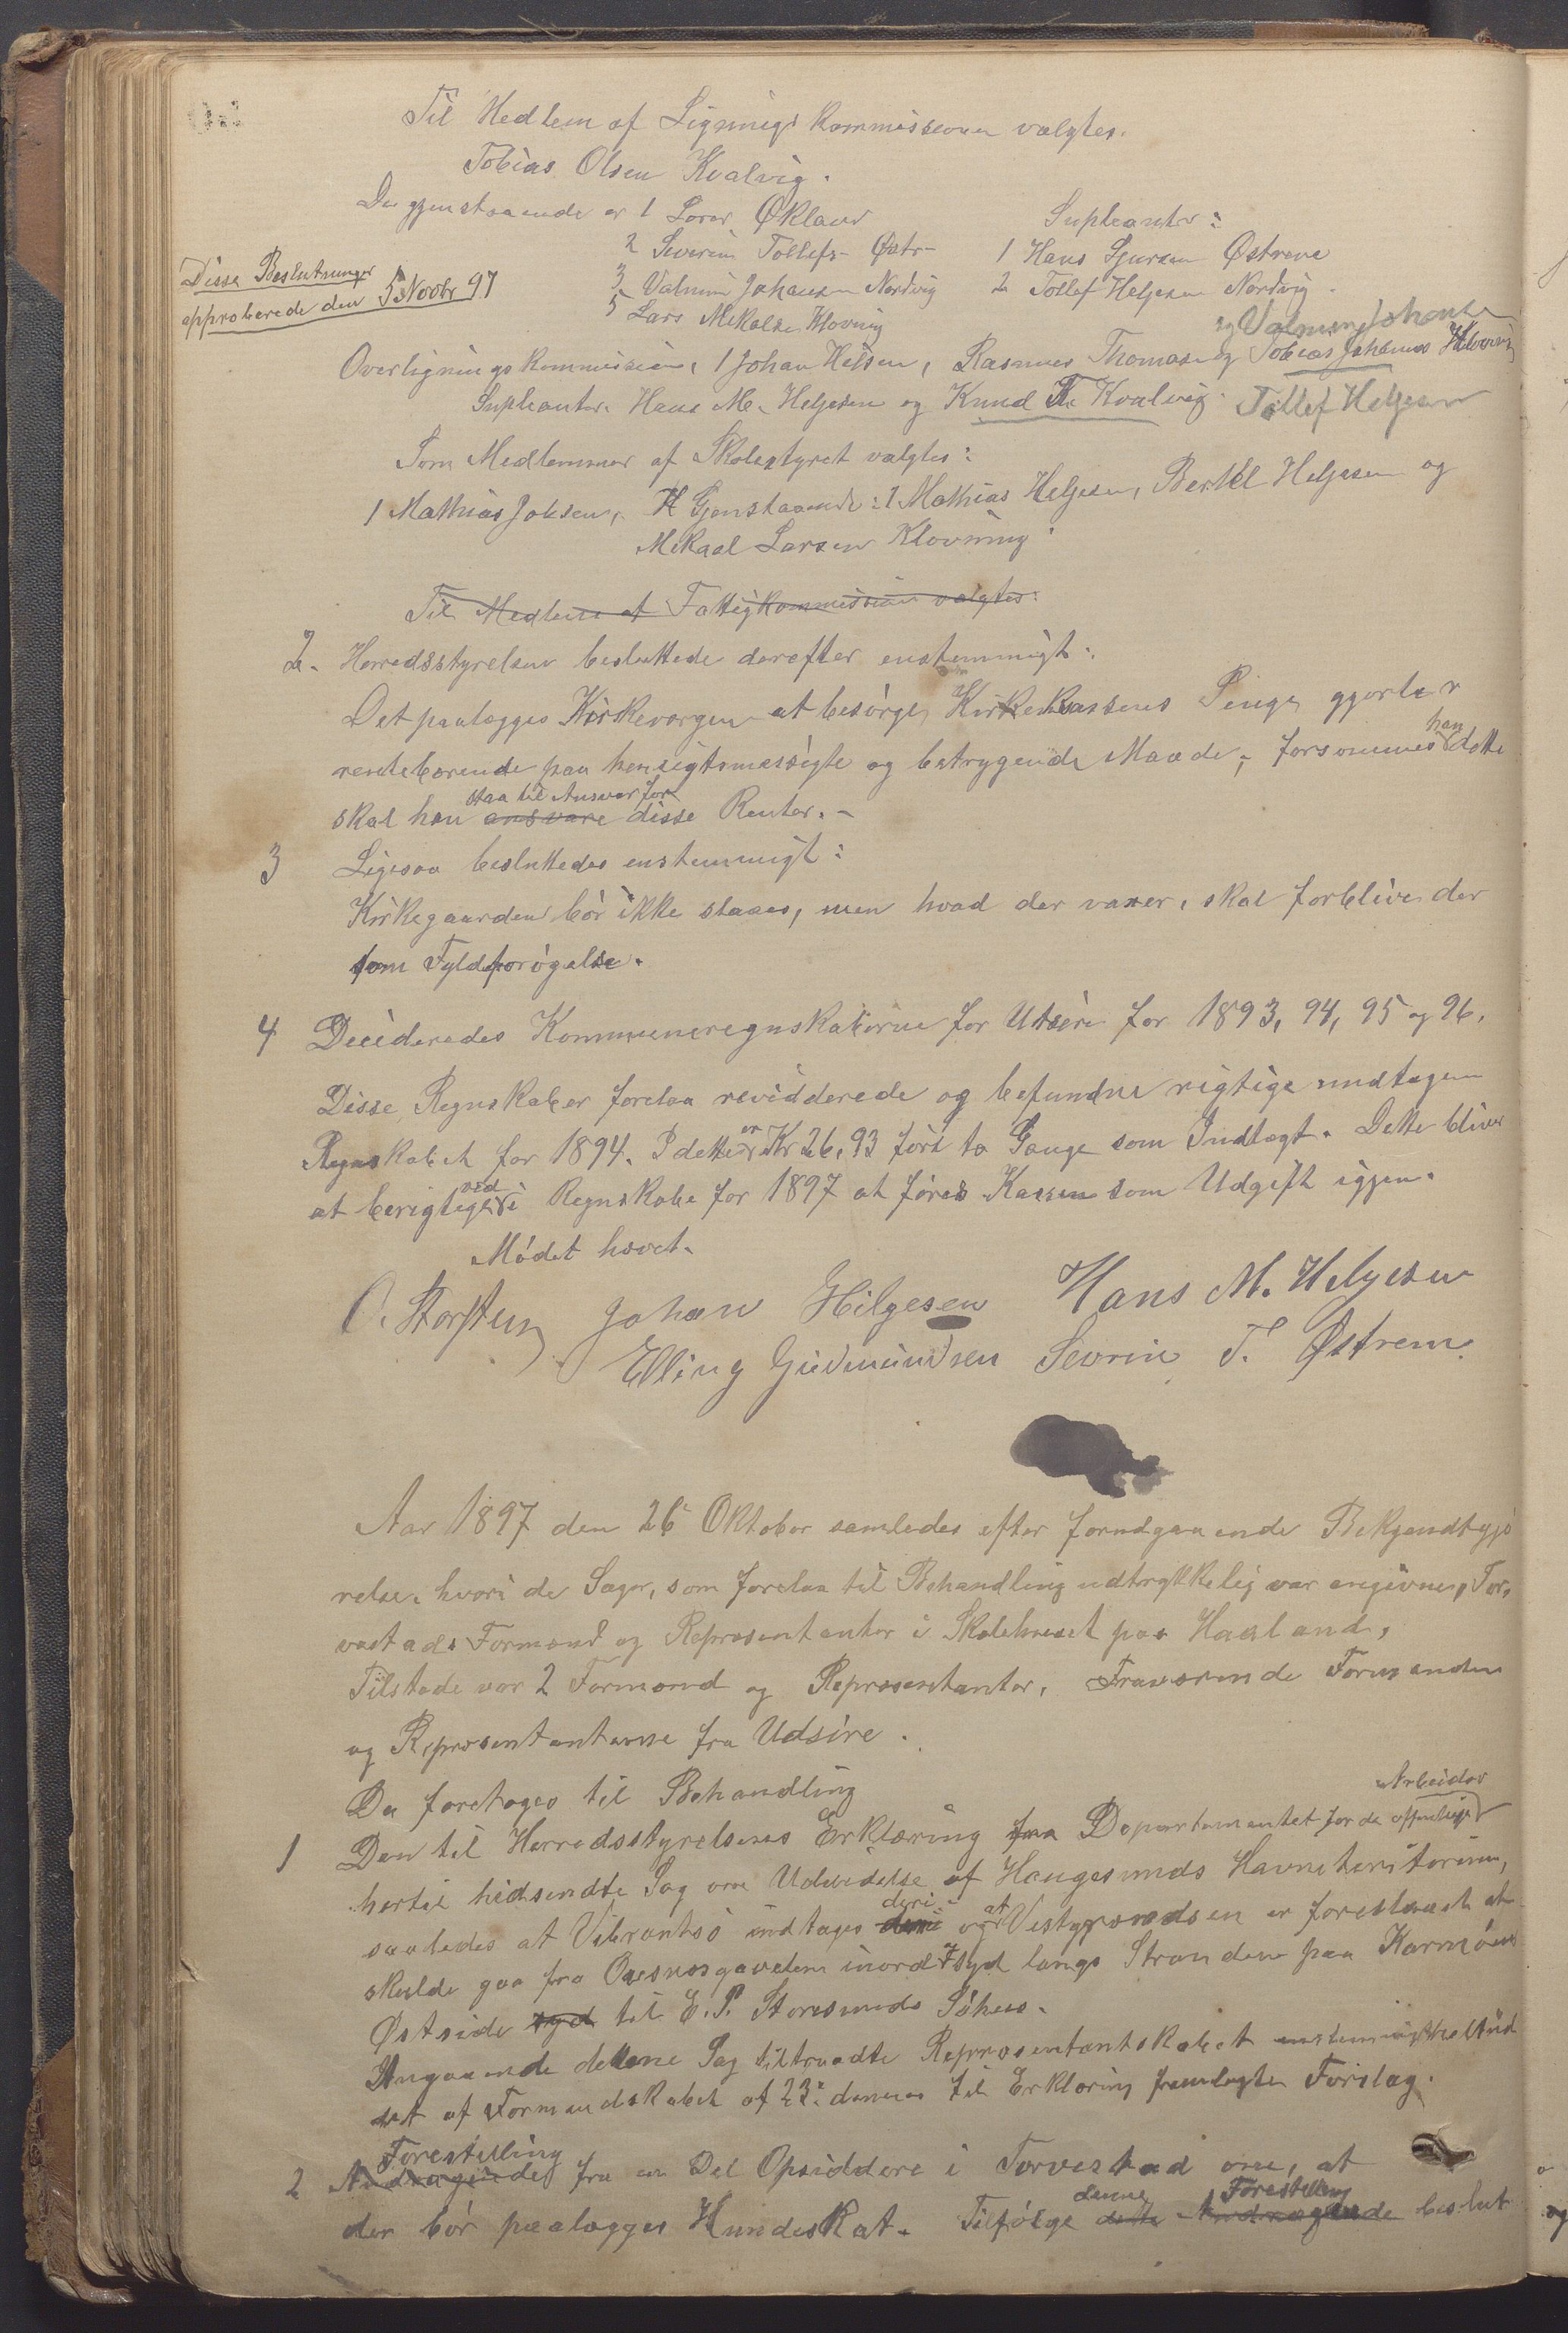 Til Medlem af Ligningskommissionen valgtes.
Tobias Olsen Kvalvig.
De gjenstaaende er 1 Lærer Økland
2 Severin Tollefs- Østr-
3 Valnum Johansen Nordvig
5 Lars Mikalsen Klovning
Supleanter:
1 Hans Sjursen Østreme
2 Tollef Helgesen Nordvig.
Disse Beslutninger
approberede den 5 Novbr 97
og Valnum Johans
Overligningskommission, 1 Johan Helsen, Rasmus Thomas og Tobias Johannes Klovning
Supleanter. Hans M. Helgesen og Knud K. Kvalvig. Tollef Helgesen
Som Medlemmer af Skolestyret valgtes:
1 Mathias Jobsen, Gjenstaaende: 1 Mathias Helgesen, Bertel Helgesen og
Mikael Larsen Klovning
Til Medlem af Fattigkommissionen valgtes:
2. Herredsstyrelsen besluttede derefter enstemmigt:
Det paalægges Kirkevergen at besørge Kirkekassens Penge gjorte r
han
rentebærende paa hensigtsmæssigste og betryggende Maade; forsømmes dette
staa til Ansvar for
skal han ansvare disse Renter. -
3 Ligesaa besluttedes enstemmigt:
Kirkegaarden bør ikke slaaes, men hvad der voxer, skal forblive der
som Fyldforøgelse.
4 Decideredes Kommuneregnskaberne for Utsire for 1893, 94, 95 og 96.
Disse Regnskaber forelaa revidderede og befundne rigtige undtagen
er
Regnskabet for 1894. I dette Kr 26,93 ført to Gange som Indtægt. Dette bliver
ved
at berigtige i Regnskabe for 1897 at føres Kassen som Udgift igjen.
Mødet hævet.
O. Storsten Johan Hilgesen Hans M. Helgesen
Elling Gudmundsen Sevrin T. Østrem.
Aar 1897 den 26 Oktober samledes efter forudgaaende Bekjendtgjø
relse, hvori de Sager, som forelaa til Behandling udtrykkelig var angivne, Tor-
vestads Formænd og Repræsentanter i Skolehuset paa Haaland,
Tilstede var 2 Formænd og Repræsentanter. Fraværende Formanden
og Repræsentanterne fra Udsire.
Da foretoges til Behandling
Arbeider
1 Den til Herredsstyrelsens Erklæring fra Departementet for de offentlige
hertil hidsendte Sag om Udvidelse af Haugesunds Havneteritorium,
deri at
saaledes at Vibrantsø indtages deri og Vestgrændsen er foreslaaet at
skulde gaa fra Qvesnæsgavelen i nord syd langs Stranden paa Karmøens
Østside syd til E. P. Storesunds Søhus.
Angaaende denne Sag tiltraadte Repræsentantskabet enstemmigt
det af Formandskabet af 23. dennes til Erklæring fremlagte Forslag.
Forestilling
2 Andragende fra en Del Opsiddere i Torvestad om, at
denne Forestilling
der bør paalægges Hundeskat. Tilfølge dette Andragende beslut